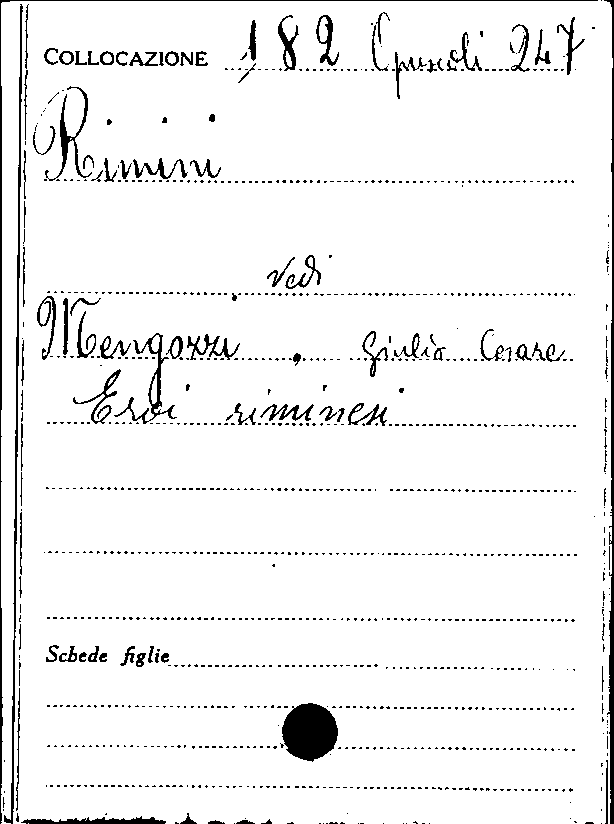 COLLOCAZIONE 182 Opuscoli 247
Rimini
vedi
Mengozzi, Giulio Cesare
Eroi riminesi
Schede figlie